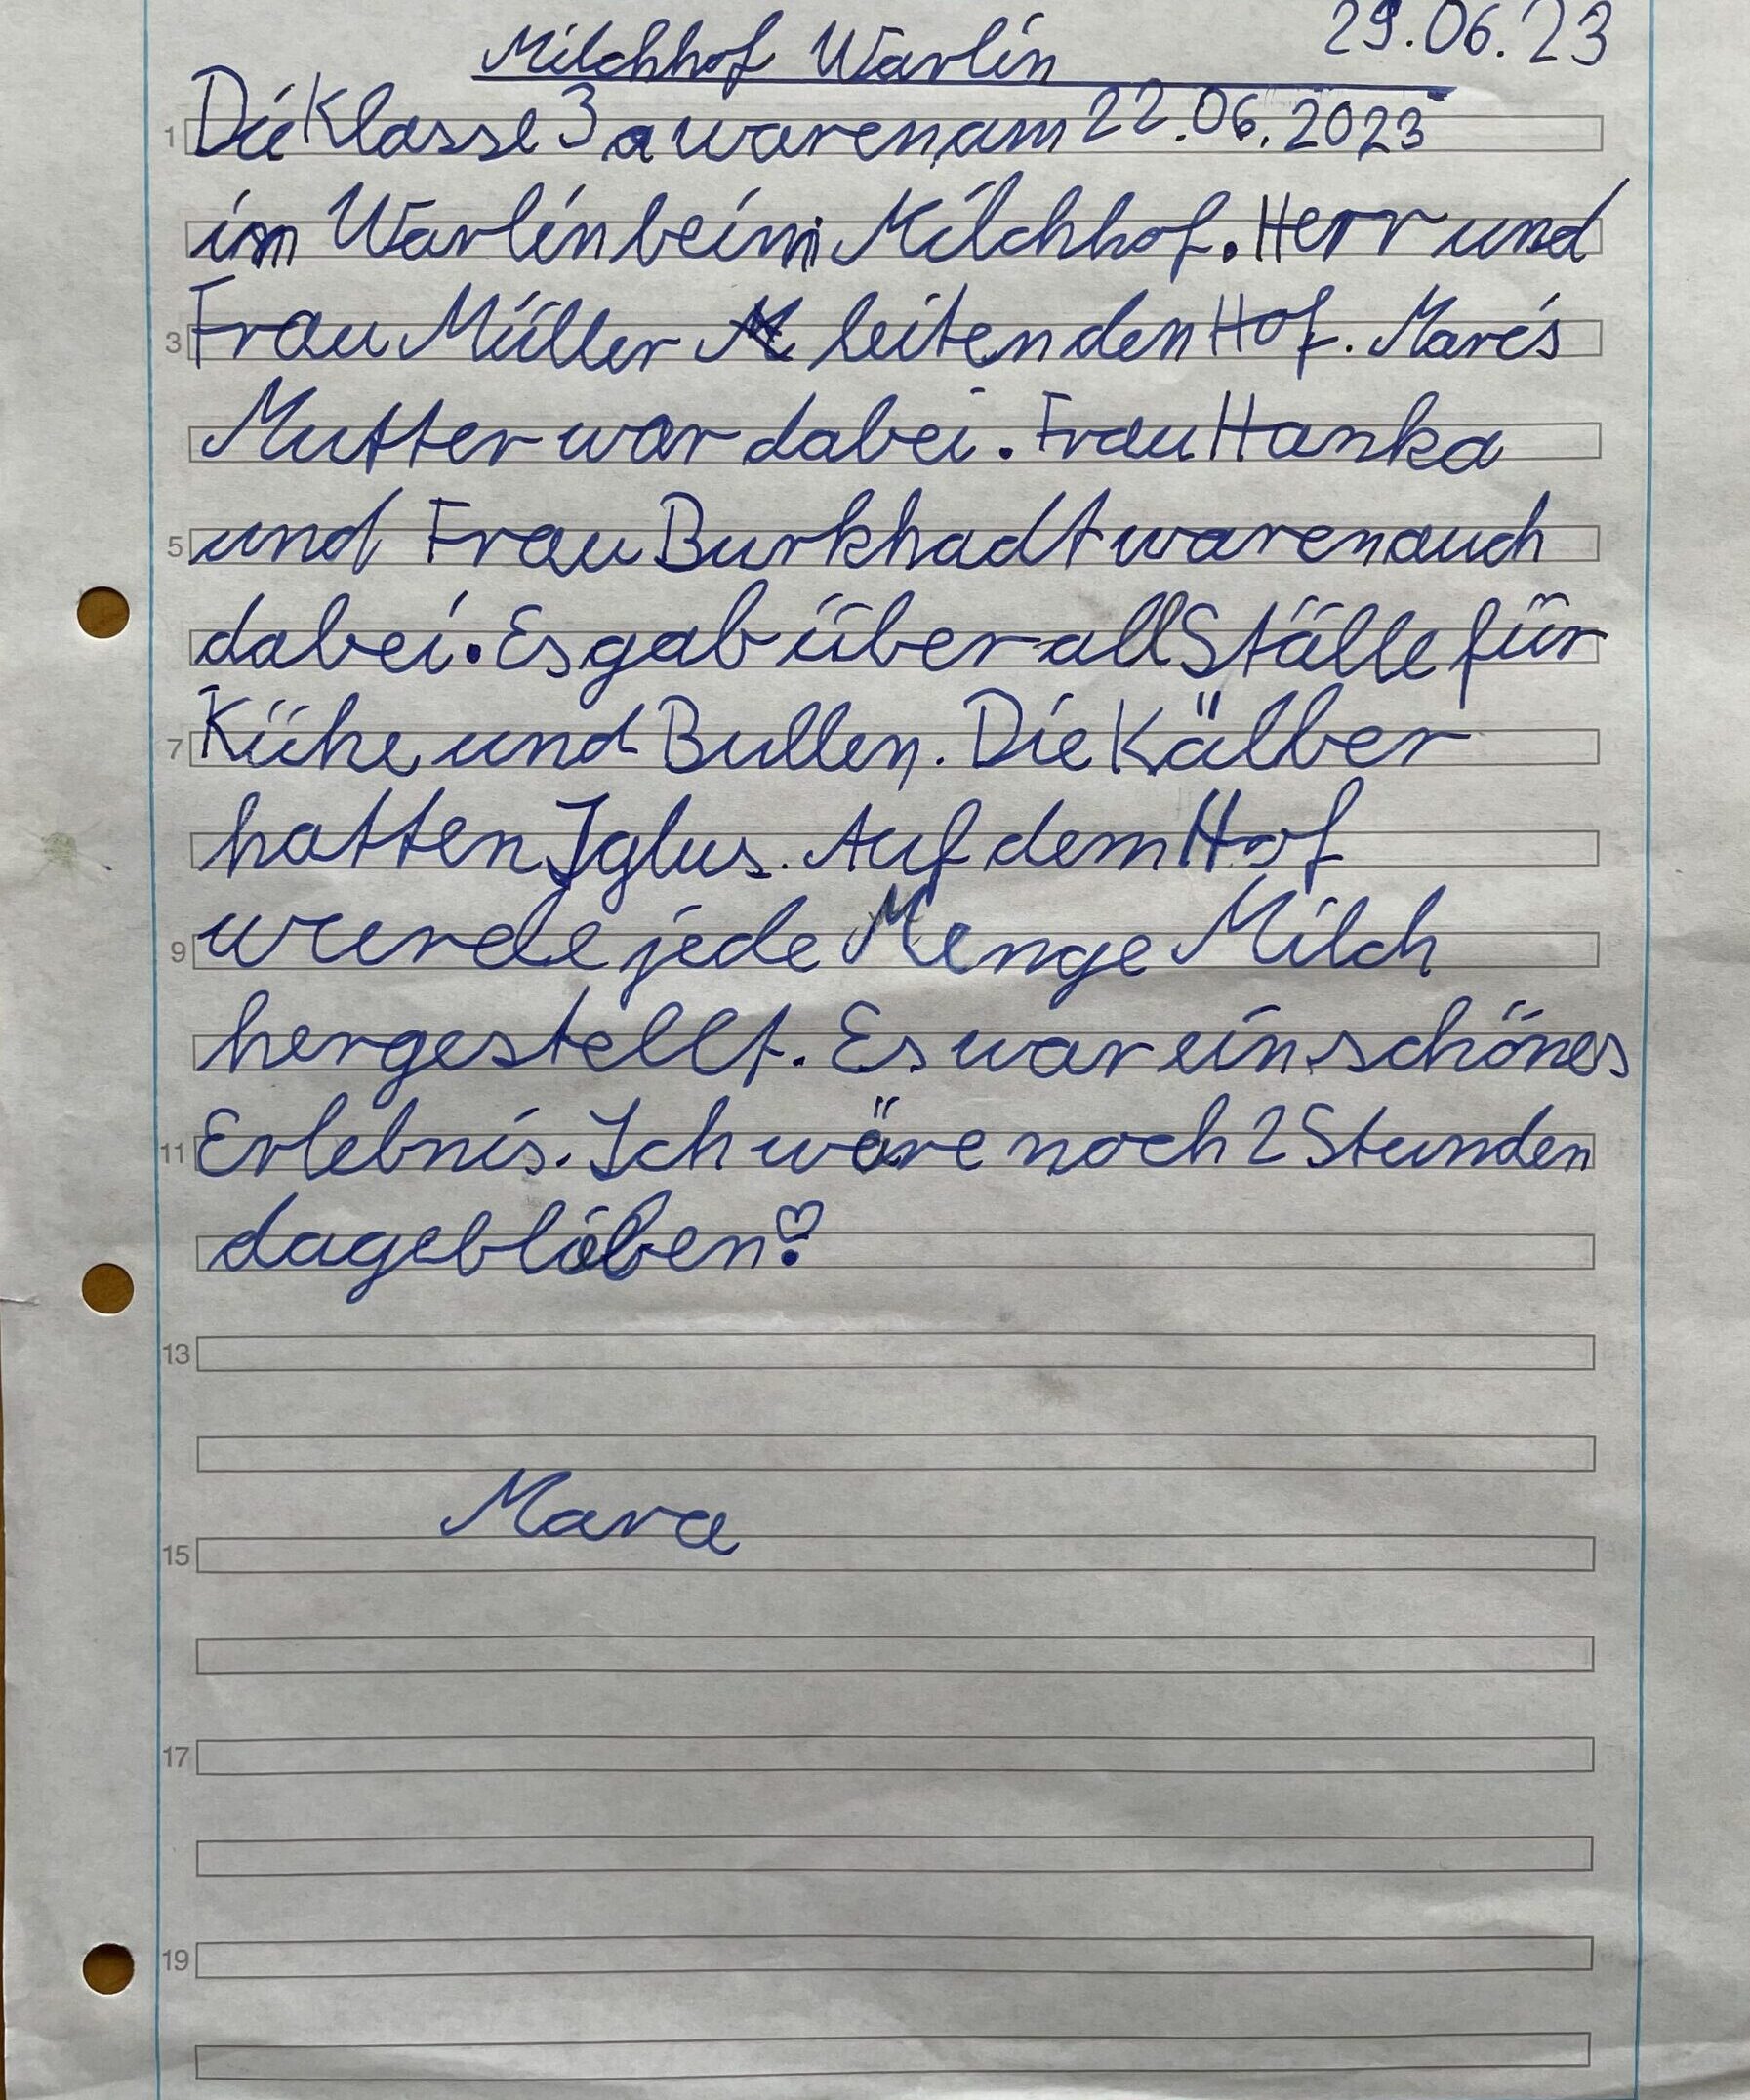 Milchhof Warlin 29.06.23
1 Die Klasse 3a waren am 22.06.2023
im Warlin beim Milchhof. Herr und
3 Frau Müller leiten den Hof. Mare's
Mutter war dabei. Frau Hanka
5 und Frau Burkhadt waren auch
dabei. Es gab überall Ställe für
7 Kühe und Bullen. Die Kälber
hatten Iglus. Auf dem Hof
9 wurde jede Menge Milch
hergestellt. Es war ein schönes
11 Erlebnis. Ich wäre noch 2 Stunden
dageblieben!
13
Mara
15
17
19